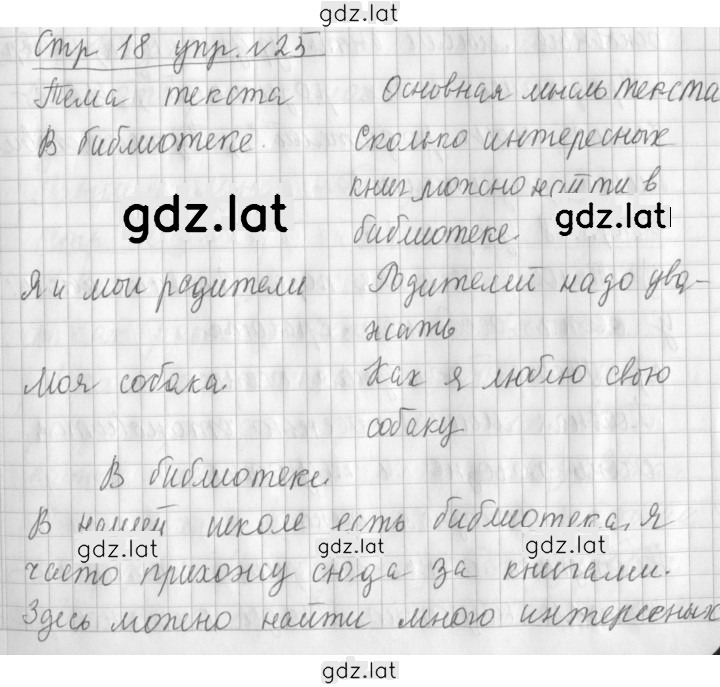 gdz.lat
Стр 18 упр. №25
Тема текста Основная мысль текста
В библиотеке. Сколько интересных
книг можно найти в
gdz.lat gdz.lat
библиотеке.
Я и мои родители Родителей надо ува-
жать
Моя собака. Как я люблю свою
собаку
В библиотеке.
В нашей школе есть библиотека, я
gdz.lat gdz.lat gdz.lat
часто прихожу сюда за книгами.
Здесь можно найти много интересных
gdz.lat